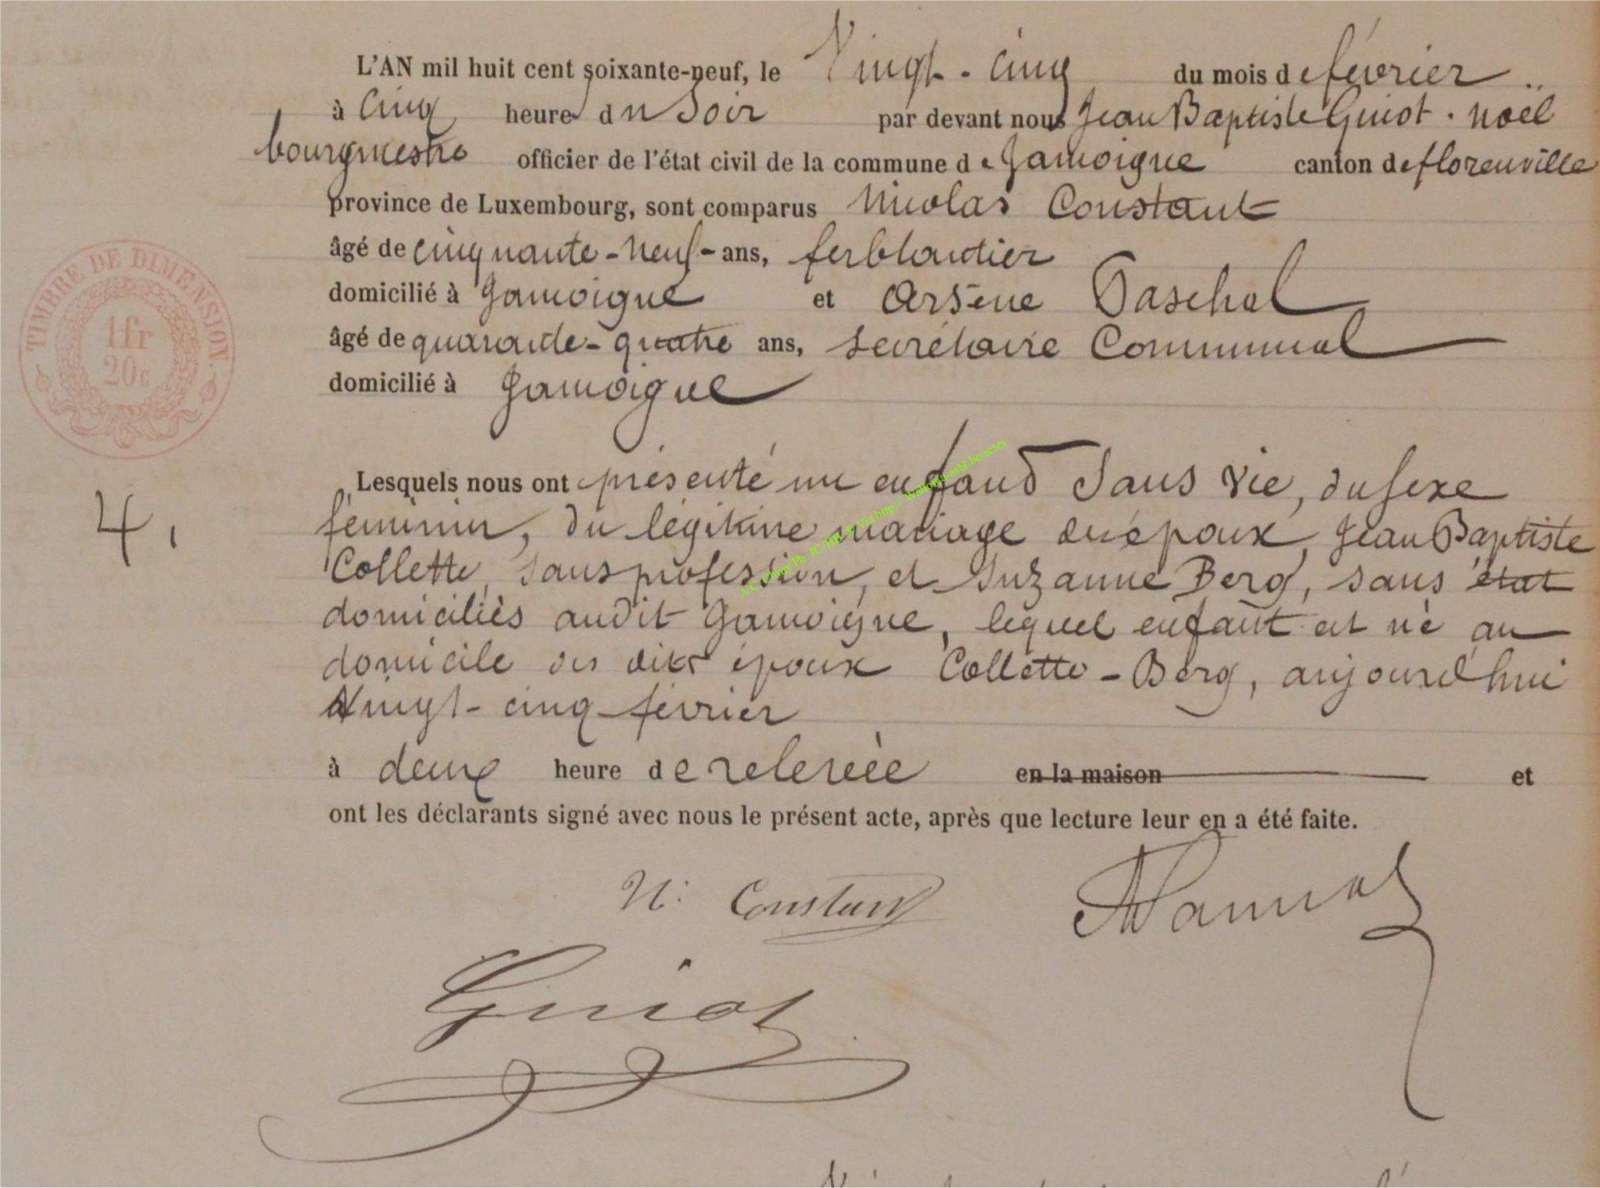 L'AN mil huit cent soixante-neuf, le Vingt-cinq du mois de février
à Cinq heure du Soir par devant nous Jean Baptiste Guiot-Noël
bourgmestre officier de l'état civil de la commune de Jamoigne canton de florenville
province de Luxembourg, sont comparus Nicolas Constant
âgé de cinquante-neuf- ans, ferblantier
domicilié à Jamoigne et Arsène Paschal
âgé de quarante-quatre ans, secrétaire Communal
domicilié à Jamoigne
Lesquels nous ont présenté un enfant Sans vie, du sexe
féminin, du légitime mariage des époux, Jean Baptiste
Collette, sans profession, et Suzanne Berg, sans état
domiciliés audit Jamoigne, lequel enfant est né au
domicile des dits époux Collette-Berg, aujourd'hui
vingt-cinq février
à deux heure de relevée en la maison et
ont les déclarants signé avec nous le présent acte, après que lecture leur en a été faite.
N. Constant
Guiot
TIMBRE DE DIMENSION
1 fr
20c
4.